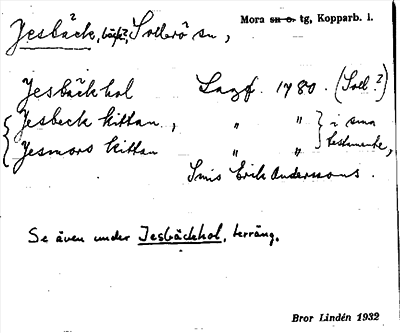 Mora sn o. tg, Kopparb. l.
Jesbäck, bäck?, Sollerö sn,
Jesbäckhol Lagf. 1780. (Soll.?)
Jesbeck kittan, " " } i sma
Jesmors kittan " " testimente,
Smis Erik Anderssons.
Se även under Jesbäckhol, terräng.
Bror Lindén 1932